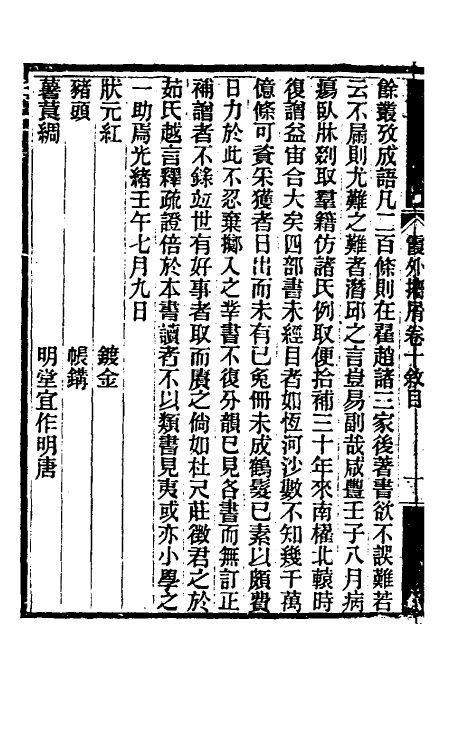 霞外攟屑卷十敘目
餘叢攷成語凡二百條則在翟趙諸三家後著書欲不誤難若
云不屚則尤難之難者潛邱之言豈易副哉咸豐壬子八月病
瘍臥牀劄取羣籍仿諸氏例取便拾補三十年來南櫂北轅時
復譄益宙合大矣四部書未經目者如恆河沙數不知幾千萬
億條可資采獲者日出而未有已兔冊未成鶴髮已素以頗費
日力於此不忍棄擲入之莘書不復分韻已見各書而無訂正
補譄者不錄竝世有好事者取而賡之倘如杜尺莊徵君之於
茹氏越言釋疏證倍於本書讀者不以類書見夷或亦小學之
一助焉光緒壬午七月九日
狀元紅　鍍金
豬頭　帳鏋
薯莨綢　明堂宜作明唐